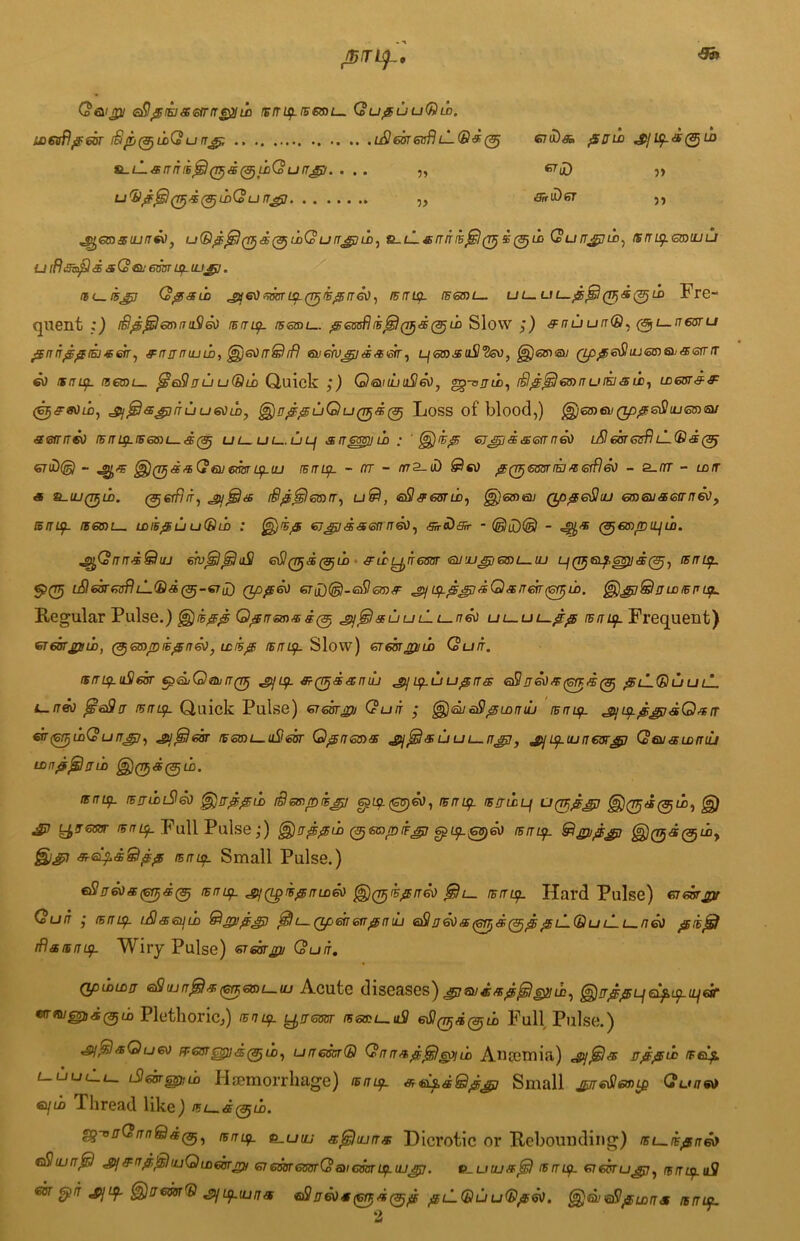 நாடி.
வெறு விதங்களாலும் நாடிநடை பேதப்படும்.
மனிதன் நிற்கும்போது .. .. .... .. .. .. .. மினிட்டுக்கு ௭௰௯ தரம் அடிக்கும்
உட்கார்ந்திருக்கும்போது. . . . „ ௭௰ „
படுத்திருக்கும்போது. . . . . . . . „ ௬௰௭ „
ஆகையால், படுத்திருக்கும்போதும், உட்கார்ந்திருக்கும் போதும், நாடியைப்
பரிக்ஷிக்கவேண்டியது.
நடந்து தேகம் அலண்டிருந்தால், நாடி நடை படபடத்திருக்கும் Fre-
quent ;) நித்திரையில் நாடி நடை. தணிந்திருக்கும் Slow ;) சாப்பாடு, குடானப
தார்த்தங்கள், சாராயம், இலாகிரி வஸ்துக்கள், புகையிலை, இவை முதலியவைகளா
ல் நாடி நடை தீவிரப்படும் Quick ;) வெய்யில், ஜ்வரம், நித்திரைபங்கம், மனச்ச
ஞ்சலம், அதகரிப்பலம், இரத்தப்பெருக்கு Loss of blood,) இவைமுத்தலியவை
களால் நாடிநடைக்கு பட படப்பு காணும் : இந்த ஏதுக்களால் மினிட்டுக்கு
௭௰௫ - ஆக இருக்கவேண்டிய நாடி - ௱ - ௱௨௰ இல் தருணங்களில் - ௨௱ - மா
க உயரும். குளிர், அதிக நித்திரை, பயி, விசனம், இவை முதலிய வைகளால்,
நாடி நடை மந்தப்படும் : இந்த ஏதுக்களால், ௬௰௬ - ௫௰௫ - ஆக குறையும்.
ஆரோக்கிய ஸ்திதியில் விருக்கும் சம்பூரண வயதுடைய புருஷனுக்கு, நாடி
ஒரு மினிட்டுக்கு-௭௰ முதல் ௭௰௫-விசை அடித்துக்கொள்ளும். இதுகிரமநாடி
Regular Pulse.) இந்தத் தொகைக்கு அதிகப்பட்டால் படபடத்த நாடி Frequent)
என்றும், குறைந்தால், மந்த நாடி Slow) என்றும் பேர்.
நாடியின் ஒவ்வொரு அடி சுருக்காய் அடிப்பதாக விரல்களுக்கு தட்டுப்பட்
டால் தீவிர நாடி Quick Pulse) என்று பேர் ; இவ்விதமாய் நாடி அடித்துக்கொ
ள்ளும்போது, அதின் நடையின் தொகை அதிகப்படாது, அடியானது வேகமாய்
மாத்திரம் இருக்கும்.
நாடி நரம்பில் இரத்தம் நிறைந்து ஓடினால், நாடி நரம்பு பருத்து இருக்கும், இ
து பூரண நாடி Full Pulse ;) இரத்தம் குறைந்து ஓடினால் நாடி சிறுத்து இருக்கும்,
இது சுஷ்கித்த நாடி Small Pulse.)
விரல்களுக்கு நாடி அழுந்தாமல் இருந்தால் திட நாடி Hard Pulse) என்று
பேர் ; நாடி மிகவும் சிறுத்து திடமுள்ளதாய் விரல்களுக்குத் தட்டுப்பட்டால் தந்தி
ரிகநாடி Wiry Pulse) என்று பேர்.
மும்மர வியாதிகளுடைய Acute diseases) துவக்கத்திலும், இரத்தபுஷ்டியுள்
ளவனுக்கும் Plethoric,) நாடி பூரண நடையி விருக்கும் Full Pulse.)
அதிகபெல ஈனனுக்கும், பாண்டு ரோகத்திலும் Anæmia) அதிக ரத்தம் நஷ்ட
ப்பட்ட பின்னும் Hæmorrhage) நாடி சுஷ்கித்து Small நூலிழை போல
வும் Thread like) நடக்கும்.
ஜ்வரரோகிக்கு, நாடி உபய சதியாக Dicrotic or Rebounding) நடந்தால்
வியாதி அசாத்தியமென்று எண்ணவேண்டியது. உபயகதி நாடி என்பது, நாடியி
ன் ஓர் அடி இரண்டு அடியாக விரல்களுக்குத் தட்டுப்படுதல். இவ்விதமாக நாடி
2